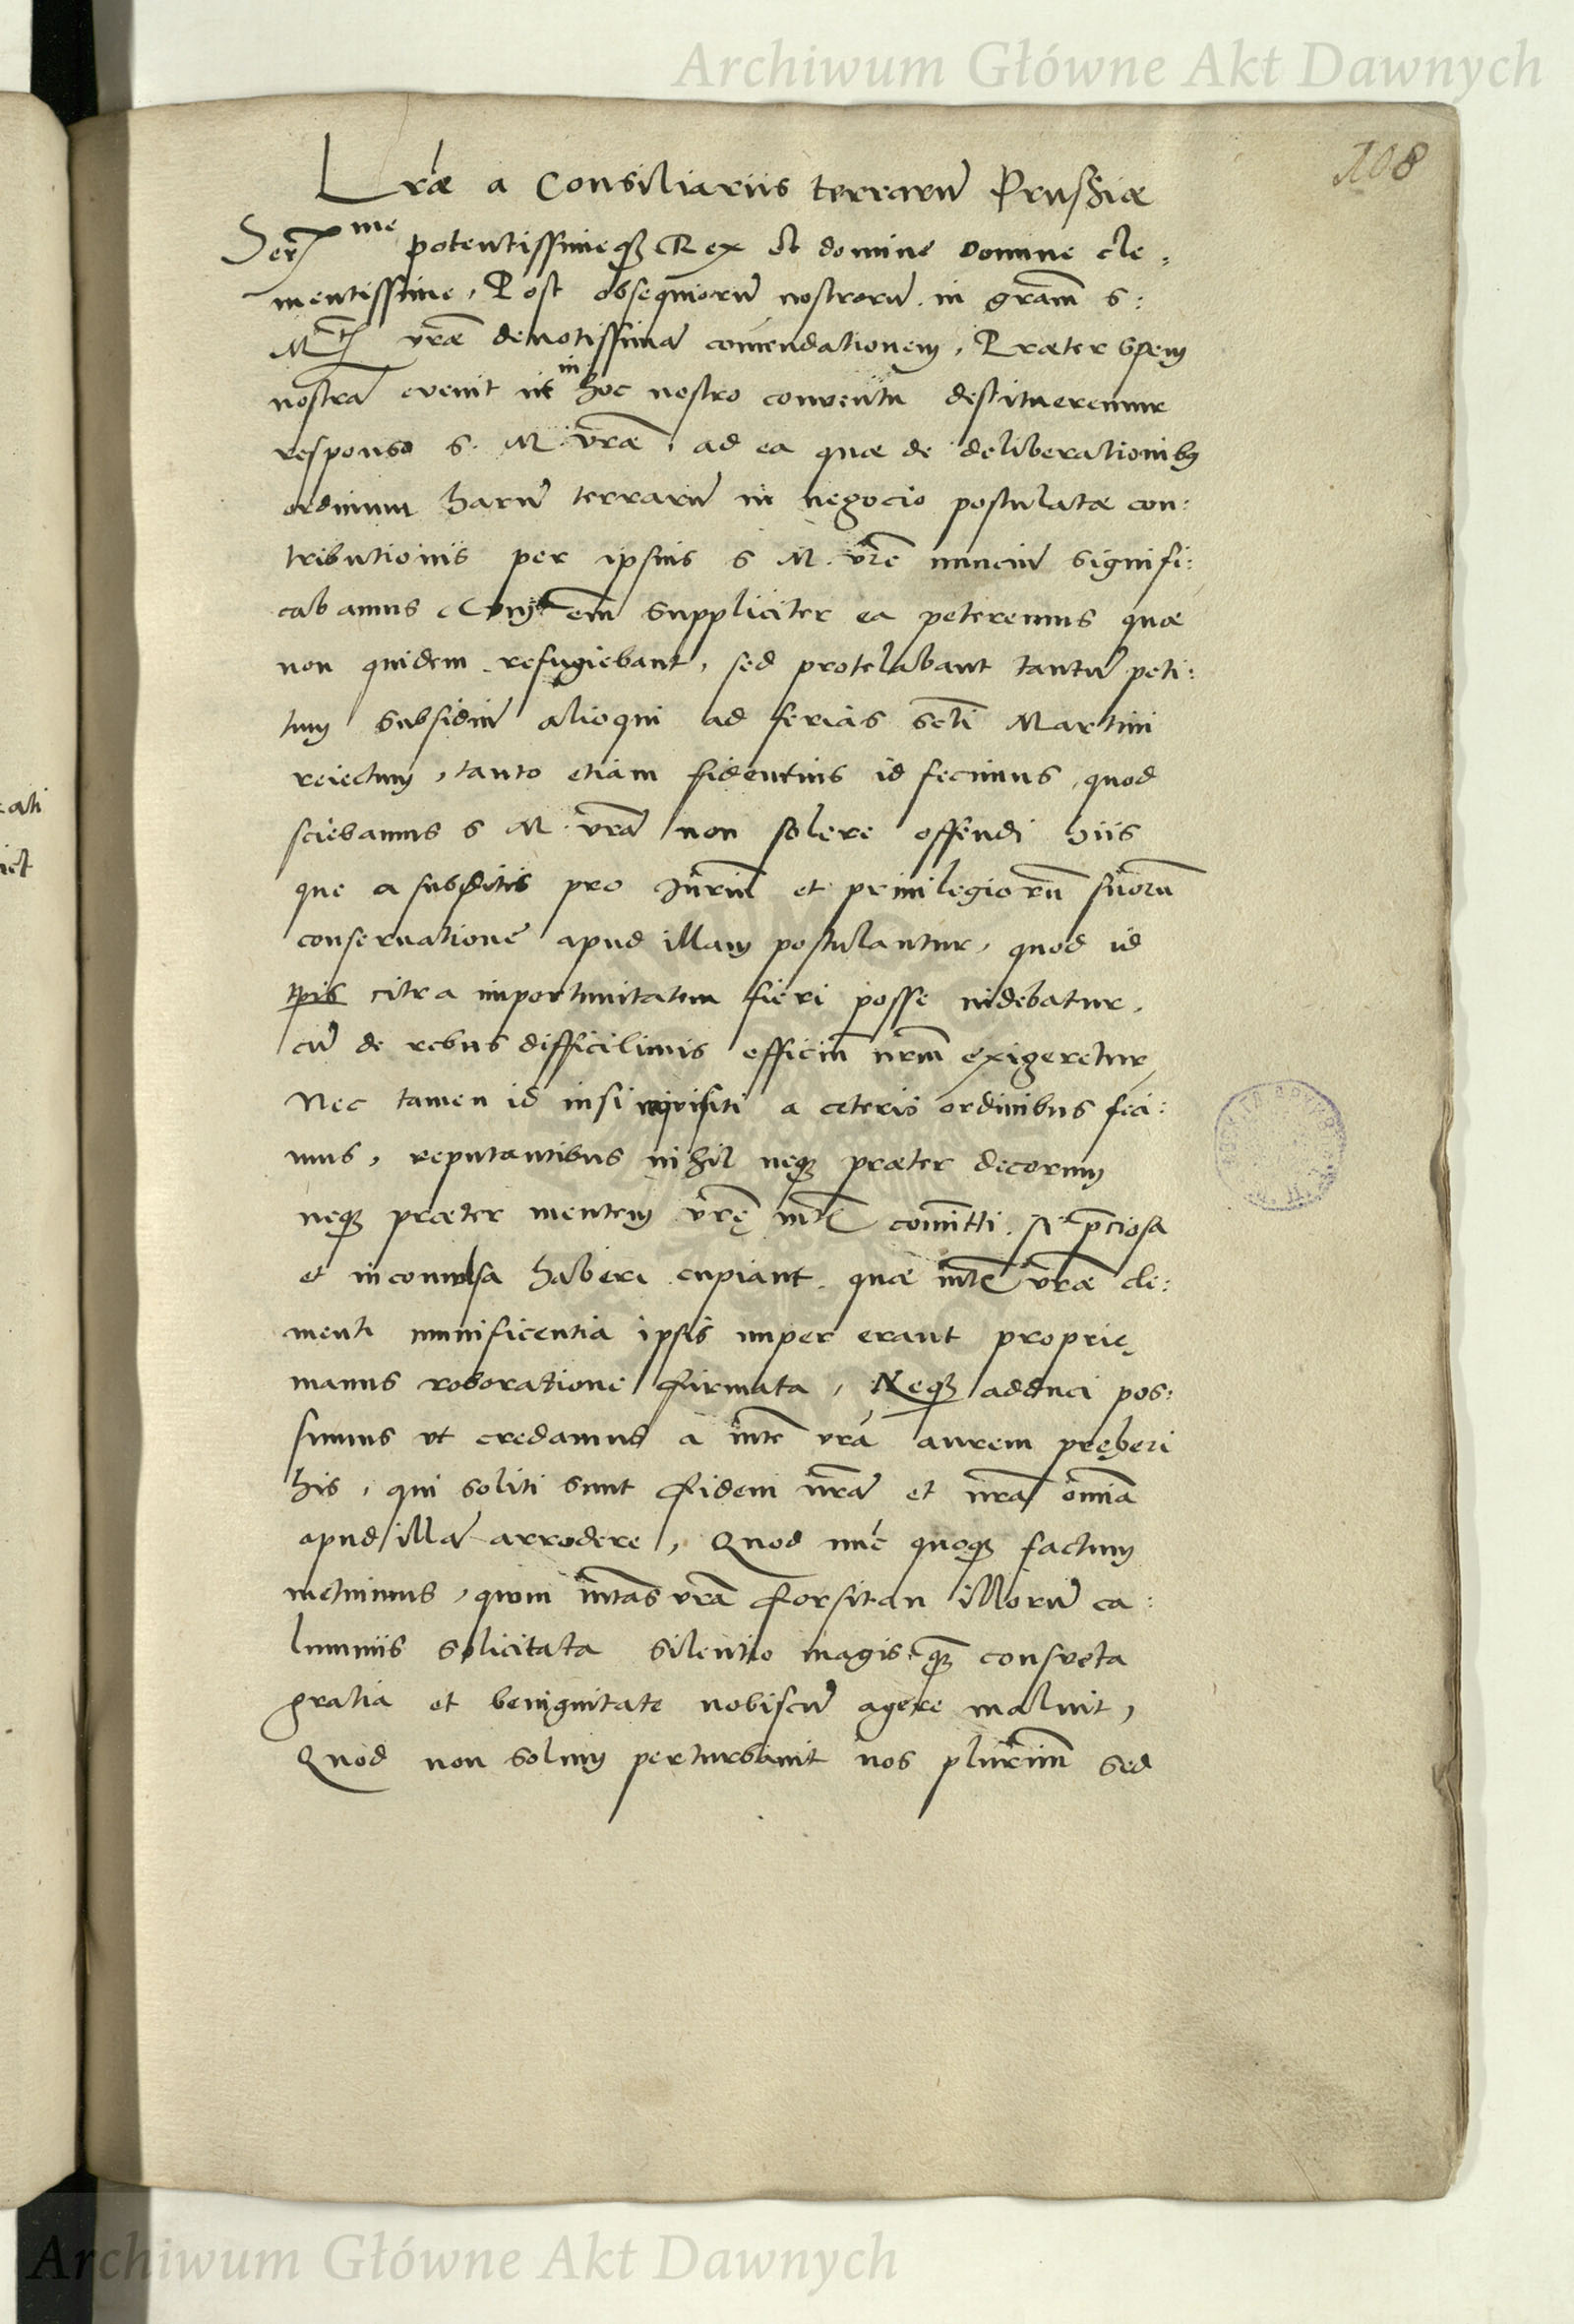 Archiwum Główne Akt Dawnych
108
Lr̃æ a Consiliariis terrarũ Prussiæ
Serᵐᵉ potentissimeqȝ Rex et domine domine cle,
mentissime, Post obsequiorũ nostrorũ in gram̃ S:
Mᵗⁱˢ vr̃æ deuotissimã com̃endationem, Præter spem
nostrã evenit ut in hoc nostro conventu destitueremur
responso S. M. vr̃æ, ad ea quæ de deliberationibȝ
ordinum harũ terrarũ in negocio postulatæ con:
tributionis per ipsius S M. vr̃e nunciũ signifi:
cabamus Cum em̃ suppliciter ea peteremus quæ
non quidem refugiebant, sed protelabant tantũ peti:
tum subsidiũ alioqui ad ferias Scti Martini
reiectum, tanto etiam fidentius id fecimus, quod
sciebamus S M. vrã non solere offendi hiis
que a subditis pro Iuriũ et priuilegiorũ suorũ
conseruatione apud illam postulantur, quod id
tpis citra importunitatem fieri posse uidebatur,
cũ de rebus difficilimis officiũ nr̃m exigeretur
Nec tamen id insi requisiti a ceteris ordinibus feci:
mus, reputantibus nihil neqȝ præter decorum
neqȝ præter mentem vr̃ę mtis com̃itti. si preciosa
et inconvulsa haberi cupiant quæ mtis vr̃æ cle:
menti munificentia ipsis nuper erant proprię
manus roboratione firmata, Neqȝ adduci pos:
sumus vt credamus a mte vrã aurem pręberi
his, qui soliti sunt fidem nr̃ã et nr̃a om̃ia
apud illã arrodere, Quod nũc quoqȝ factum
metuimus, quom mtas vrã forsitan illorũ ca:
lumniis solicitata silentio magis qȝ consveta
gratia et benignitate nobiscũ agere maluit,
Quod non solum perturbauit nos plurimũ sed
Archiwum Główne Akt Dawnych